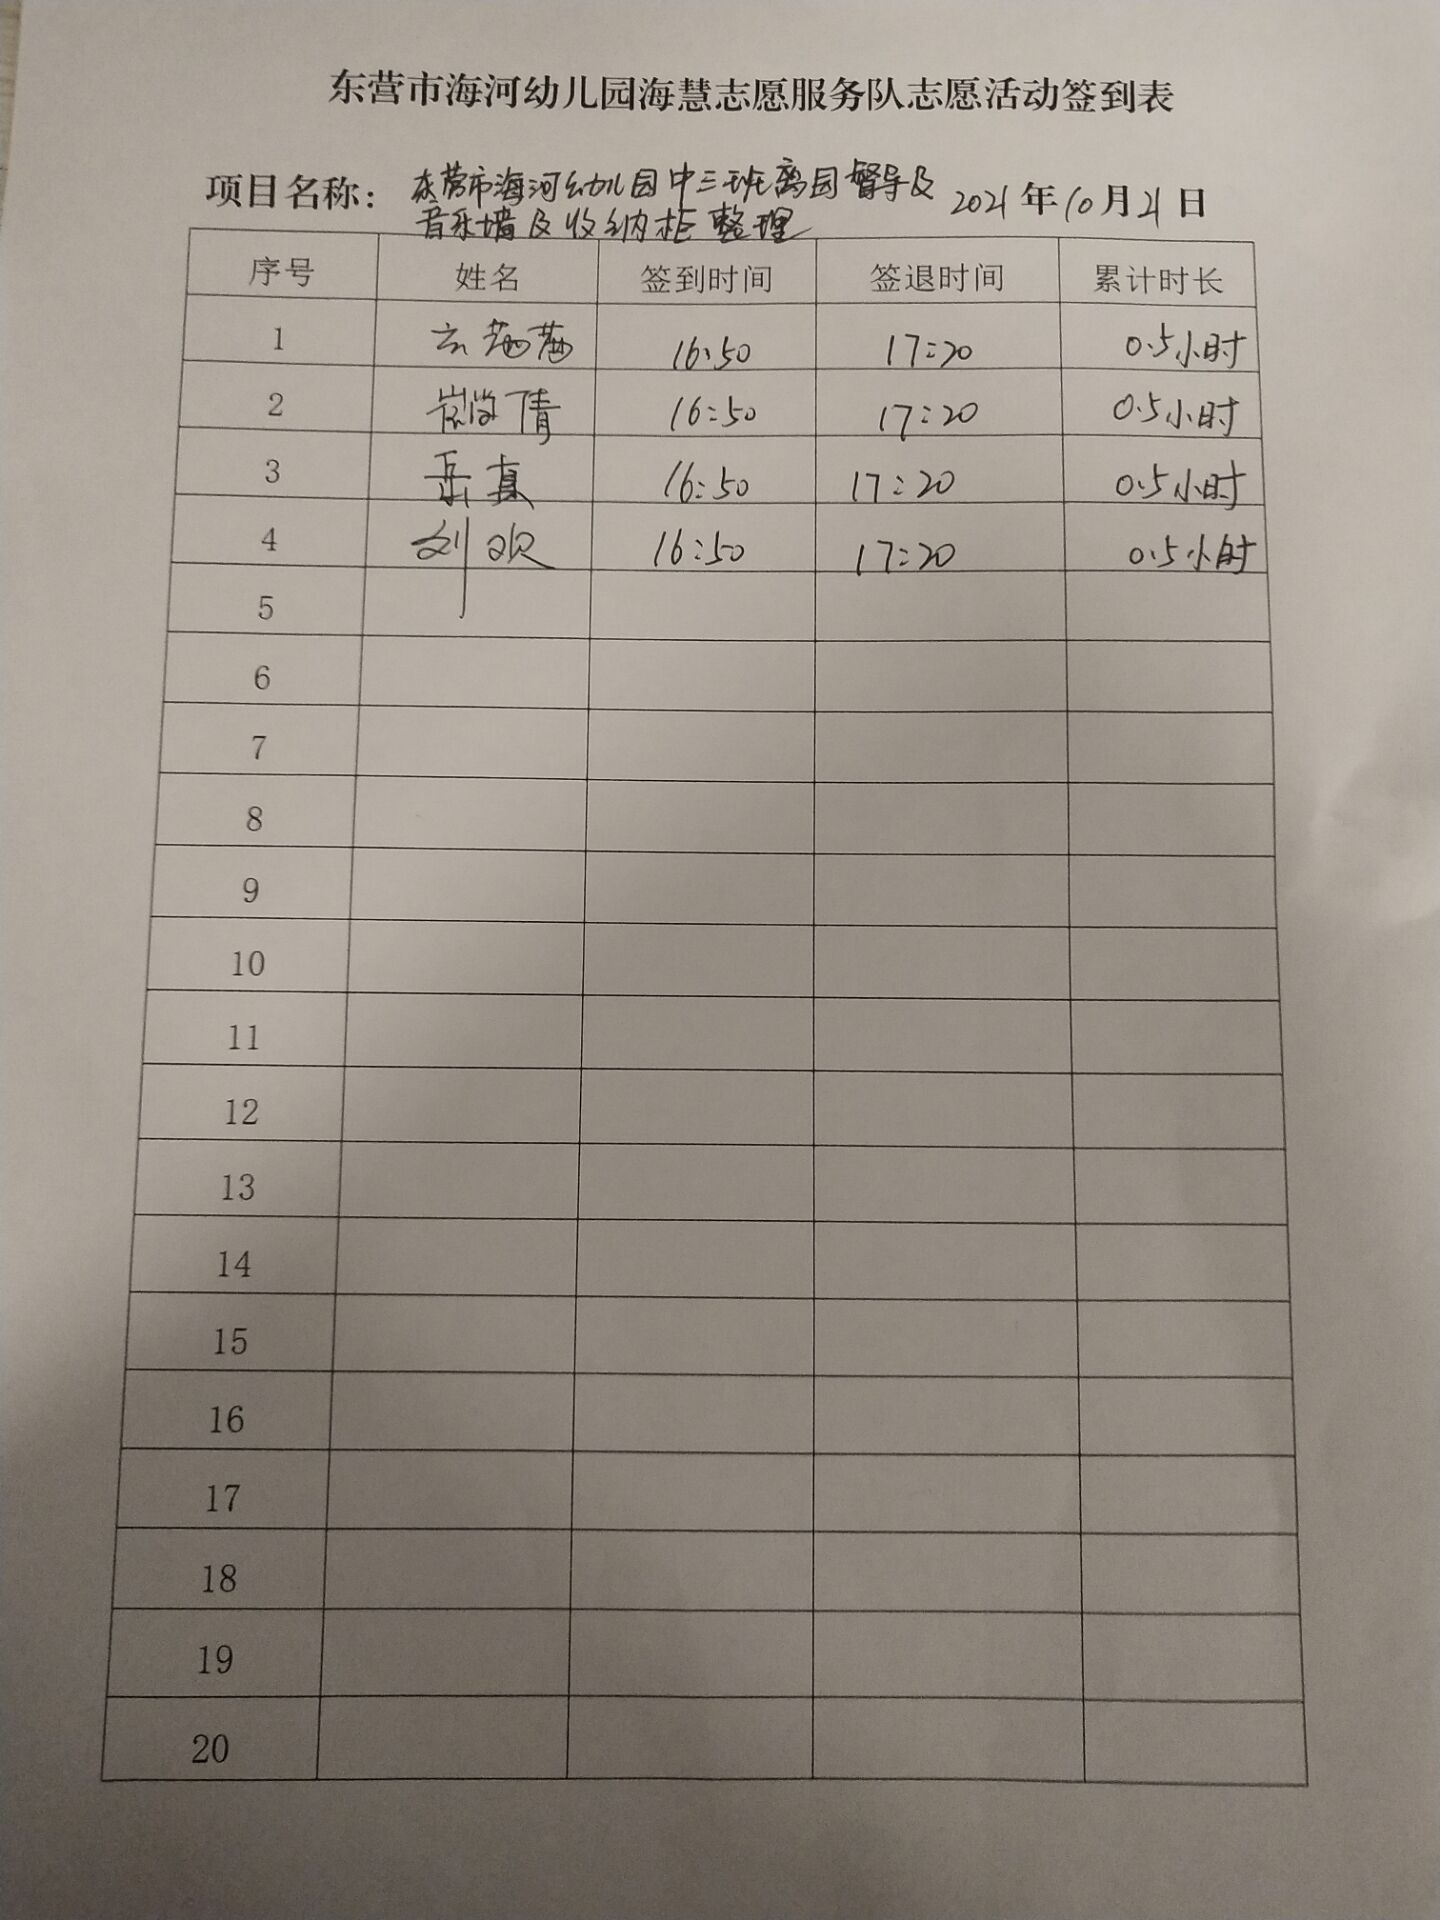 东营市海河幼儿园海慧志愿服务队志愿活动签到表
项目名称： 东营市海河幼儿园中三班离园督导及 2021年10月21日
音乐墙及收纳柜整理
序号 姓名 签到时间 签退时间 累计时长
1 16:50 17:20 0.5小时
2 倩 16:50 17:20 0.5小时
3 岳真 16:50 17:20 0.5小时
4 刘欢 16:50 17:20 0.5小时
5
6
7
8
9
10
11
12
13
14
15
16
17
18
19
20